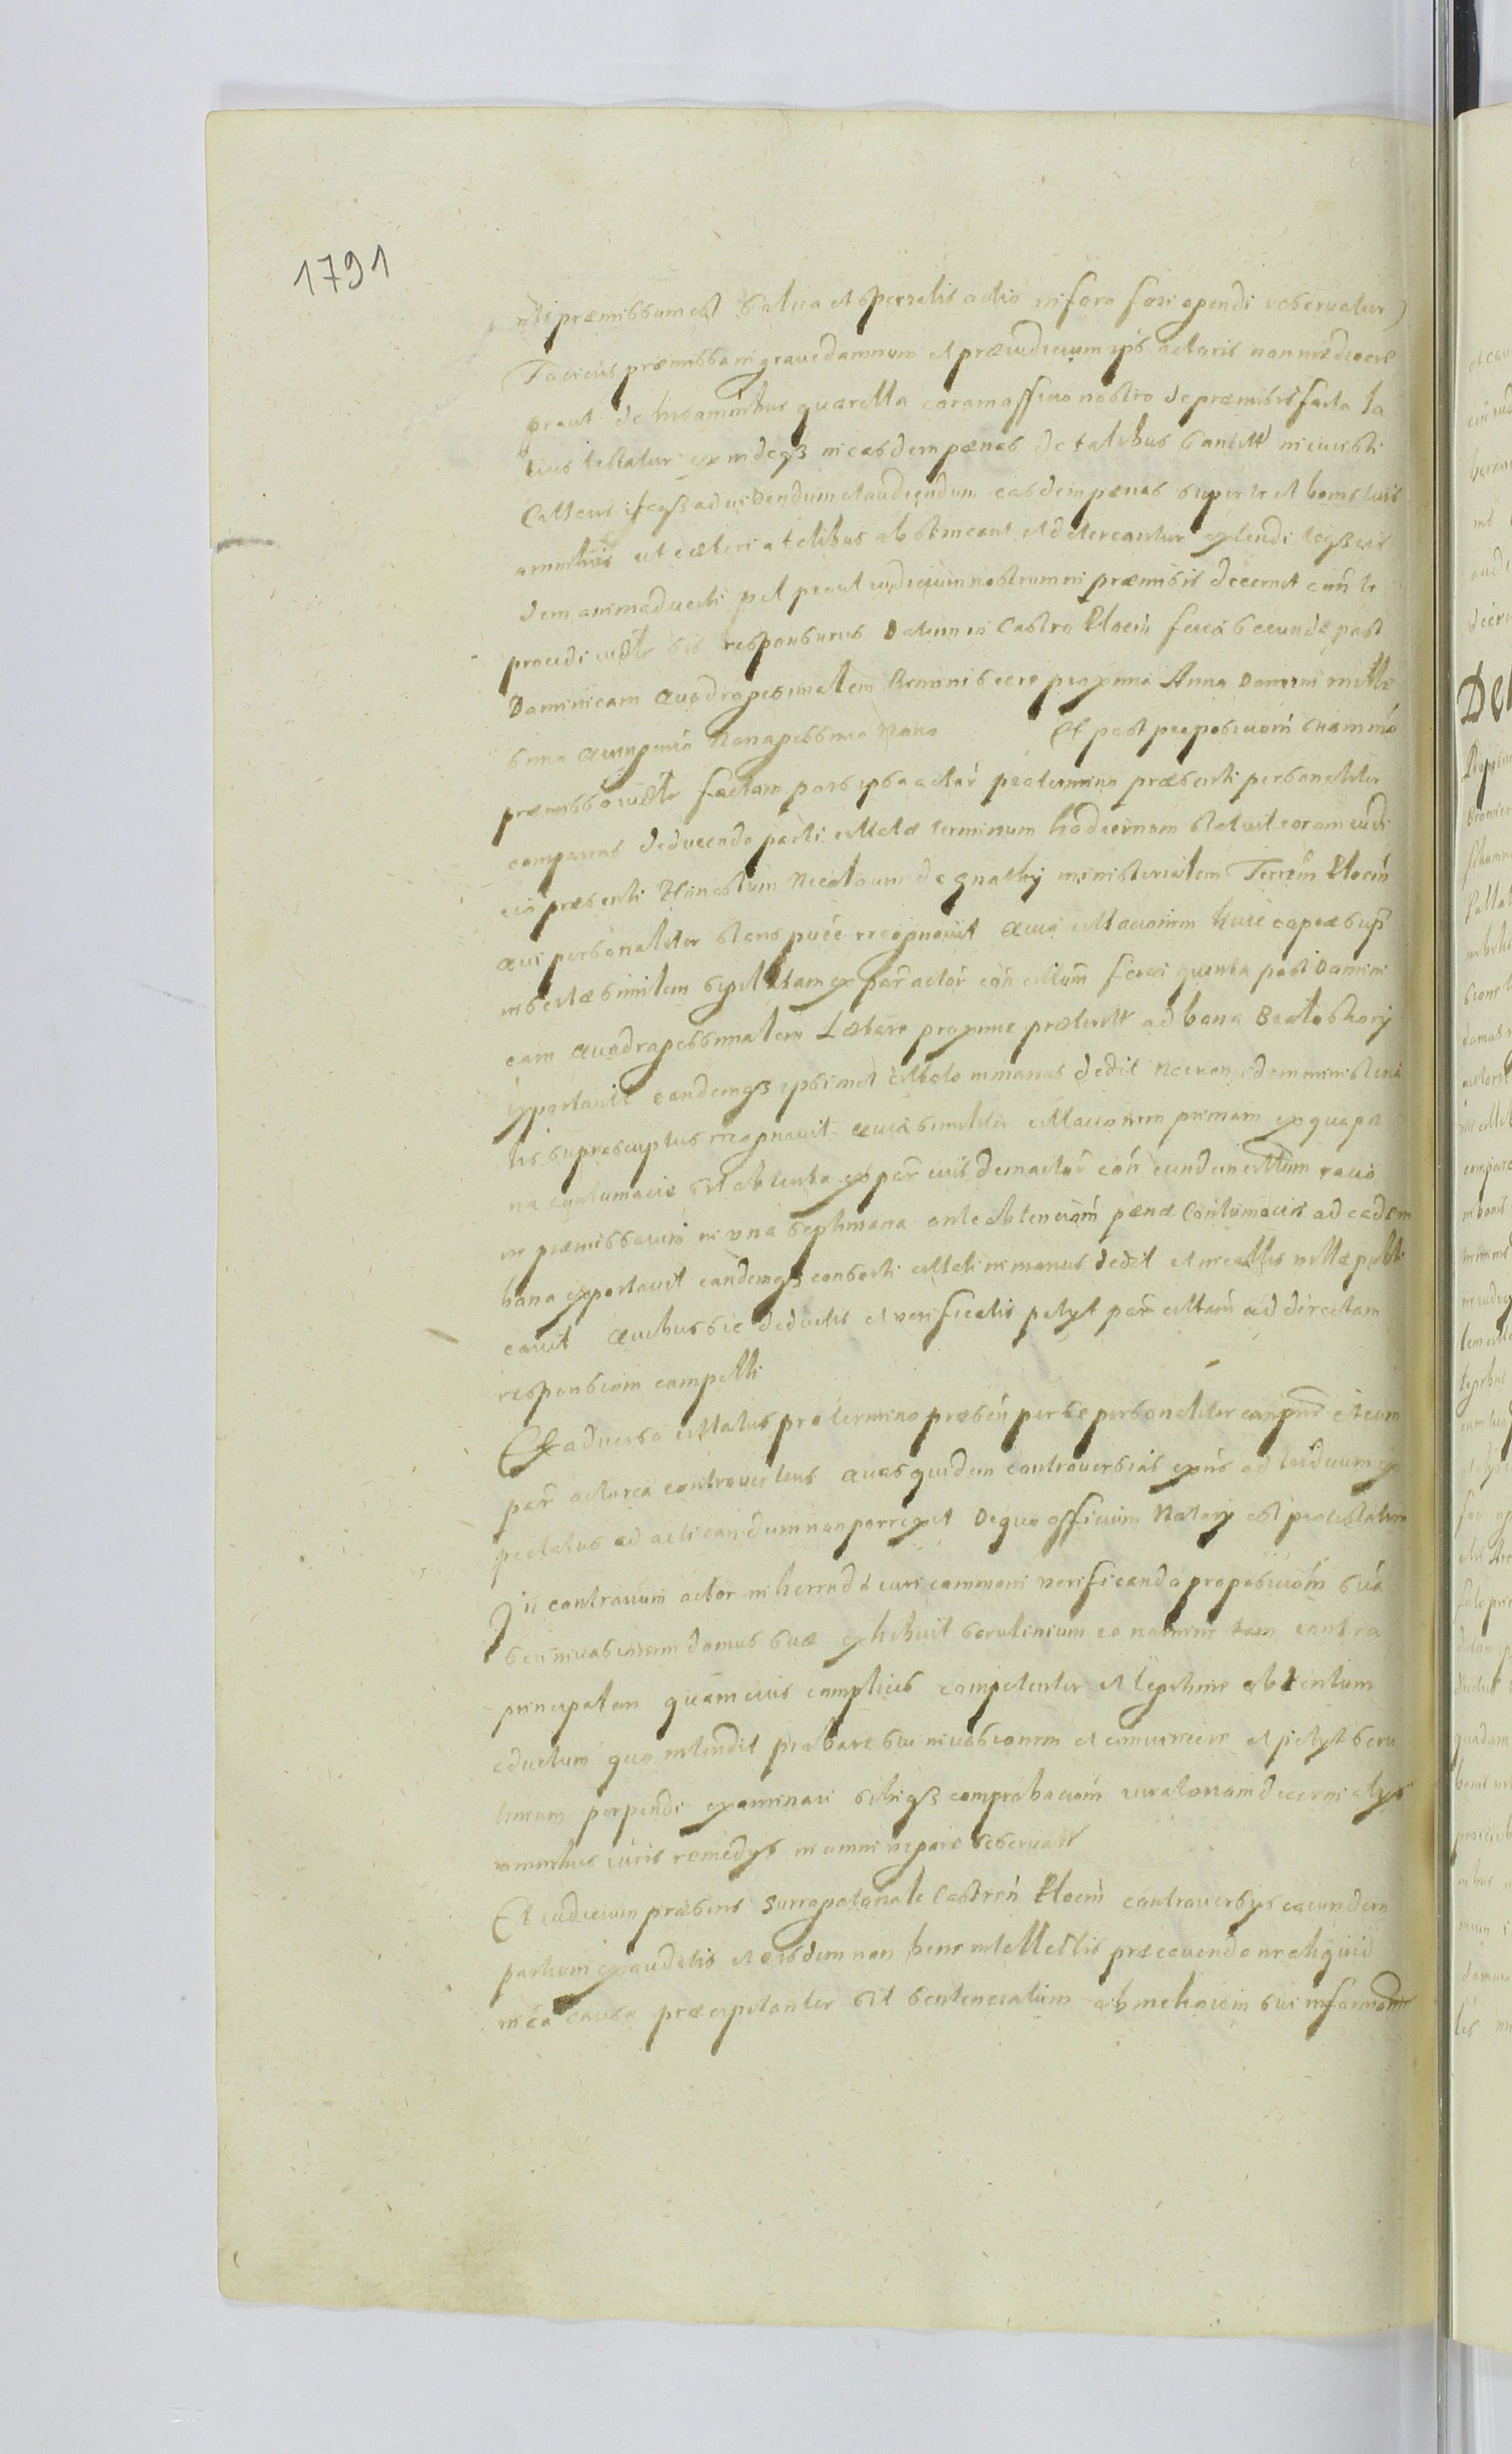 1791
uti præmissum est salva et specialis actio in foro fori agendi reservatur)
Faciens præmissa in grave damnum et præiudicium ips actoris non mediocre
prout de his omnibus quærella coram officio nostro de præmissis facta la
tius testatur exindeqз in easdem pænas de talibus sancitt incuristi
Citteris itaqз ad videndum et audiendum easdem pænas super te et bonis tuis
omnibus ut cæteri a talibus abstineant et deterreantur extendi teqз eis
dem animadverti pst prout iudicium nostrum in præmissis decernet con te
procedi iudte sis responsurus Datum in Castro Plocen feria secunda post
Dominicam Quadragesimalem Reminiscere proxima Anno Domini mille
simo quingento Nonagessimo Nono Et post proposicom suam mo
præmisso iudte factam pars ipsa actor pro termino præsenti personaliter
comparens deducendo parti cittatæ terminum hodiernum statuit coram iudi
cio præsenti Honestum Nicolaum de Gnathy ministerialem Terrarum Plocen
qui personaliter stans puce recognovit Quia cittacionem huic copiæ supr
insertæ similem sigillatam ex par actor con cittum feria quinta post Domini
cam Quadragessimalem Lætare proxime præteritt ad bona Bratoshory
exportavit eandemqз ipsimet cittato in manus dedit Nec non idem ministeria
lis suprascriptus recognovit quia similiter cittacionem primam ex qua pæ
na contumaciæ est obtenta ex par eiusdem actor con eundem cittum racio
ne præmissorum in una septimana ante obtencom pænæ Contumaciæ ad eadem
bona exportavit eandemqз consorti cittati in manus dedit et in callis villæ publi
cavit Quibus sic deductis et verificatis petyt par cittam ad directam
responsiom compelli
Ex adverso cittatus pro termino præsen per se personaliter compns et cum
par actorea controvertens quas quidem controversias exns ad triduum ex
pectatus ad acticandum non porrexit De quo officium Notary est protestatum
In contrarium actor inherendo iuri communi verificando proposiciom suam
scu invasionem domus suæ exhibuit scrutinium eo nomine tam contra
principalem quam eius complices competenter et legitime obtentum
eductum quo intendit probare scu invasionem et convincere et petyt scru
tinium perpendi examinari sibiqз comprobaciom iuratoriam decerni alys
omnibus iuris remedys in omni nepore reservatt
Et iudicium præsens Surrogatoriale Castren Plocen controversys earundem
partium exauditis et eisdem non bene intellectis præcavendo ne aliquid
in ea causa præcipitanter sit sentenciatum ob meliorem sui informacom